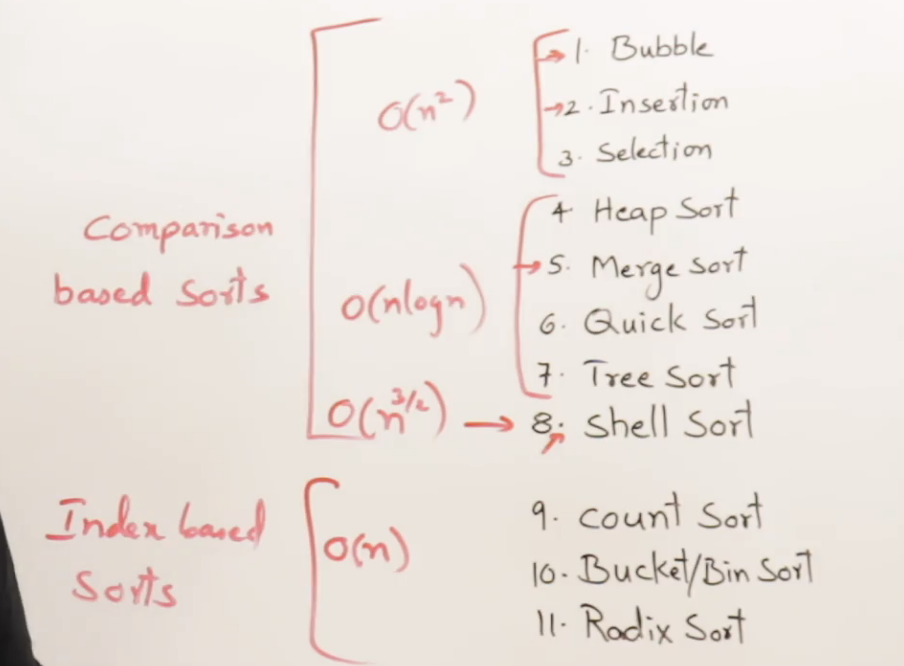 Comparison
based Sorts
O(n²)
1. Bubble
2. Insertion
3. Selection
O(nlogn)
4 Heap Sort
5. Merge Sort
6. Quick Sort
7. Tree Sort
O(n^3/2) → 8. Shell Sort
Index based
Sorts
O(n)
9. Count Sort
10. Bucket/Bin Sort
11. Radix Sort